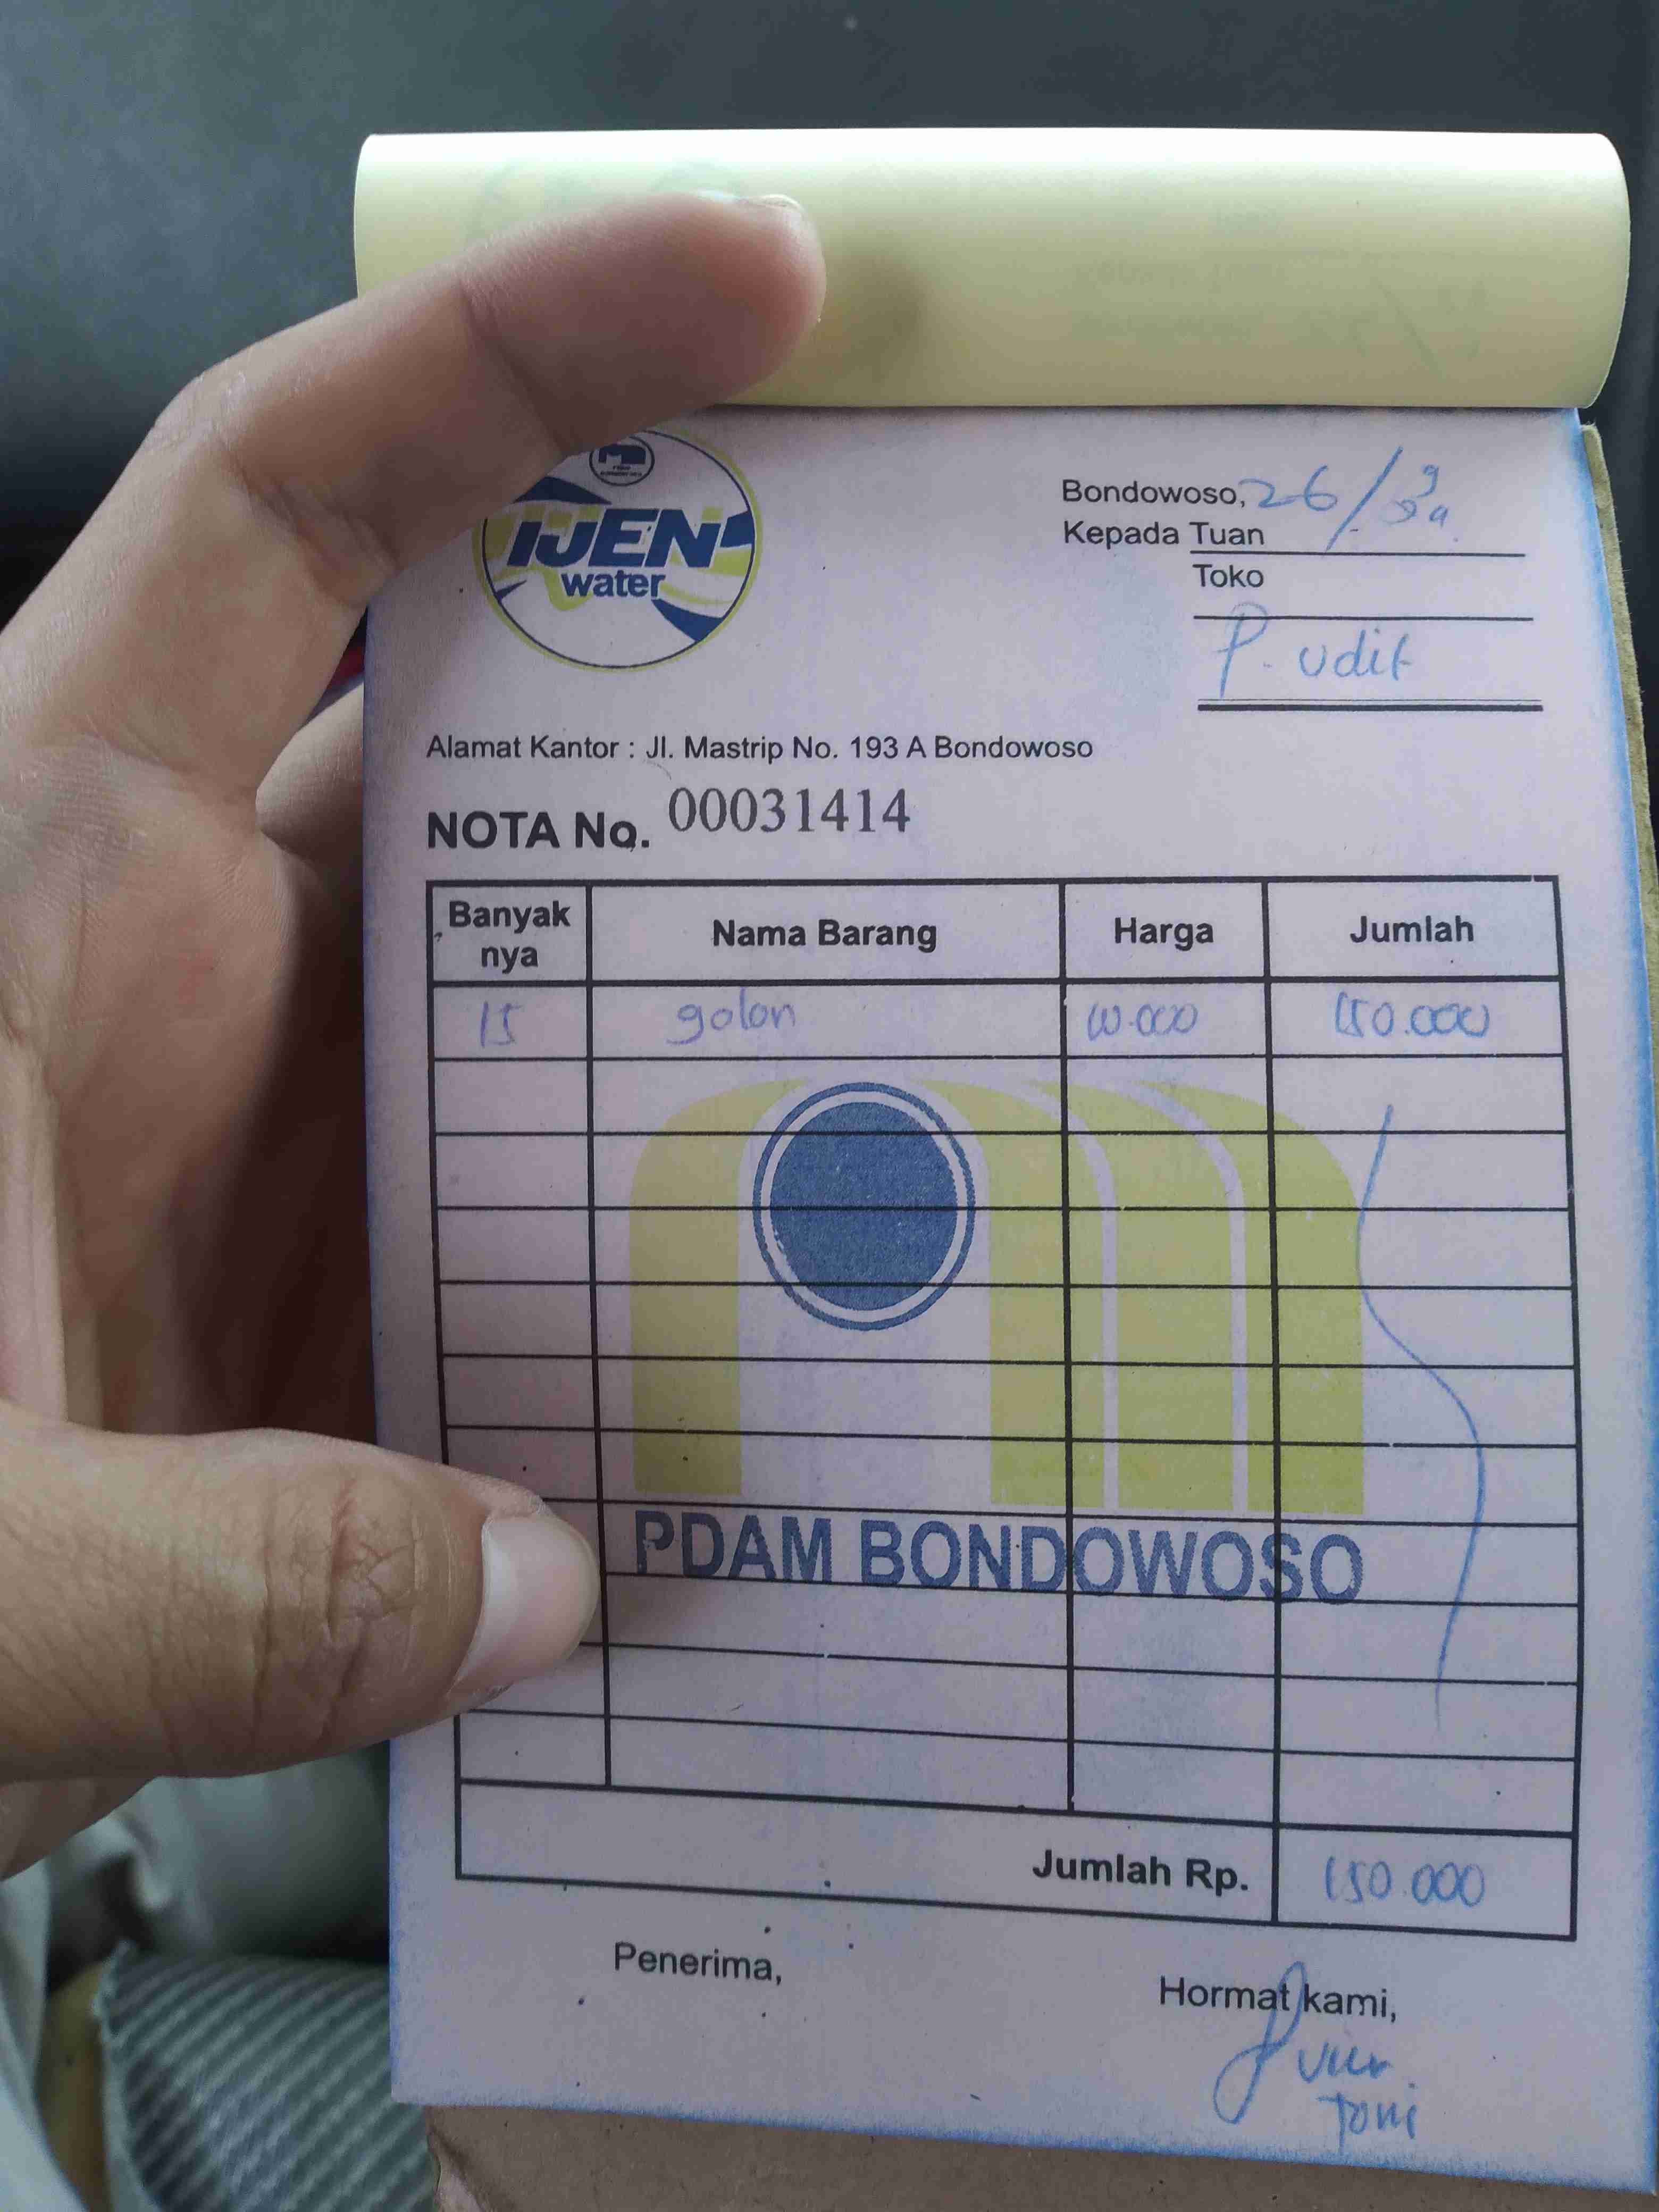 IJEN
water
Bondowoso, 26/9
Kepada Tuan
Toko
P. udit
Alamat Kantor : Jl. Mastrip No. 193 A Bondowoso
NOTA No. 00031414
Banyak nya Nama Barang Harga Jumlah
15 galon 10.000 150.000
PDAM BONDOWOSO
Jumlah Rp. 150.000
Penerima,
Hormat kami,
Toni